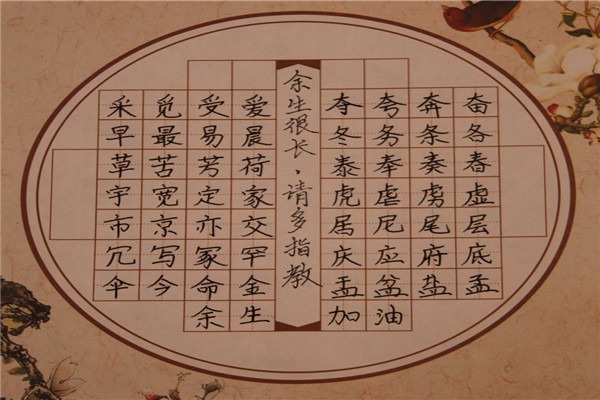 采觅受爱
早最易晨
草苦芳荷
宇宽定家
市京亦交
冗写冢罕
伞今命金
余生
余生很长，请多指教
夺夸奔奋
冬务条各
泰奉奏春
虎虐虏虚
居尼尾层
庆应府底
盂盆盐孟
加油